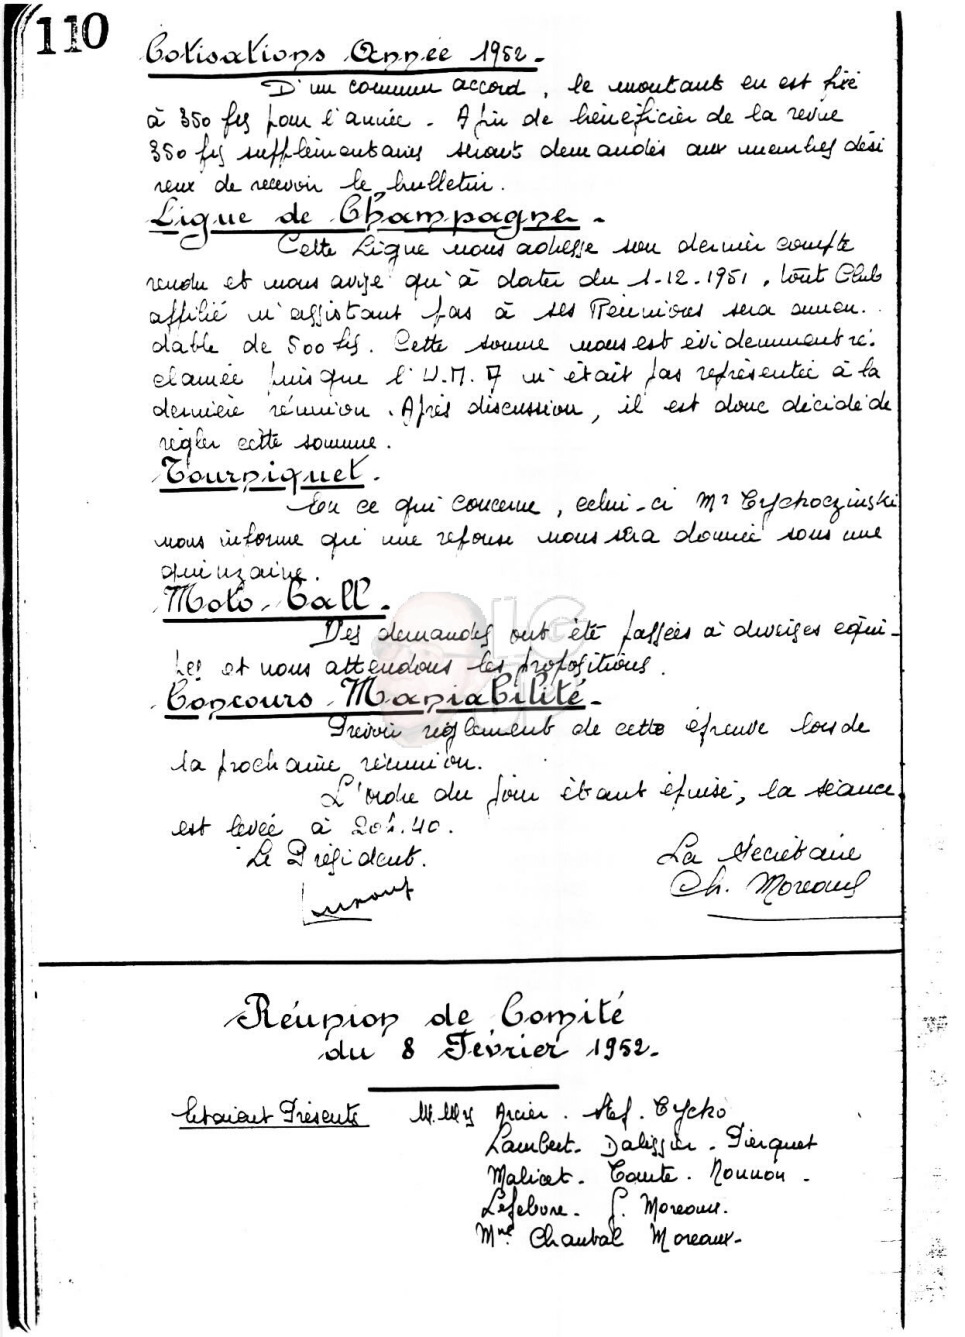 110
Cotisations Année 1952.
D'un commun accord, le montant en est fixé
à 350 frs pour l'année. Afin de bénéficier de la revue
350 frs supplémentaires seront demandés aux membres dési
reux de recevoir le bulletin.
Ligue de Champagne.
Cette Ligue nous adresse son dernier compte
rendu et nous avise qu'à dater du 1.12.1951, tout Club
affilié n'assistant pas à ses Réunions sera amen.
dable de 500 frs. Cette somme nous est évidemment ré.
clamée puisque l'U.M.A n'était pas représentée à la
dernière réunion. Après discussion, il est donc décidé de
régler cette somme.
Tourniquet.
En ce qui concerne, celui-ci Mr Cychoczinski
nous informe qu'une réponse nous sera donnée sous une
quinzaine.
Moto-Ball.
Des demandes ont été passées à diverses équi-
pes et nous attendons les propositions.
Concours Maniabilité.
Prévoir règlement de cette épreuve lors de
la prochaine réunion.
L'ordre du jour étant épuisé, la séance
est levée à 20h.40.
Le Président.
La Secrétaire
Ch. Moreaux
Réunion de Comité
du 8 Février 1952.
Etaient Présents M.Mrs Arcier. Stef. Cycko
Lambert. Dalissier. Pierquet
Malicet. Comte. Nounon.
Lefebvre. G. Moreaux.
Mme Chantal Moreaux.